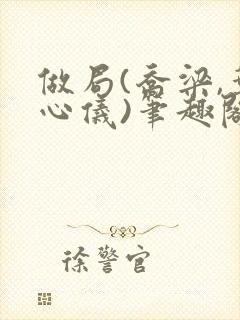 做局(乔梁,
心仪)笔趣阁
徐警官